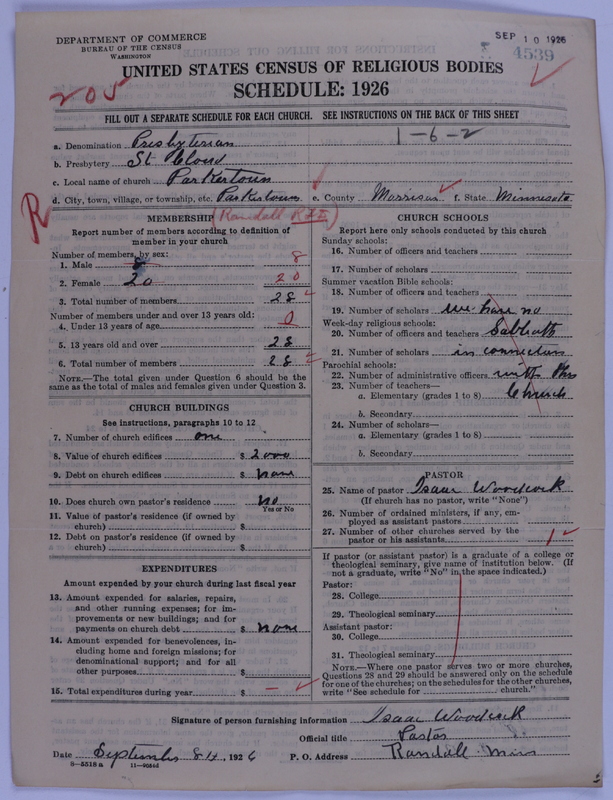 DEPARTMENT OF COMMERCE
BUREAU OF THE CENSUS
WASHINGTON
SEP 10 1926
4539
UNITED STATES CENSUS OF RELIGIOUS BODIES
SCHEDULE: 1926
205
FILL OUT A SEPARATE SCHEDULE FOR EACH CHURCH. SEE INSTRUCTIONS ON THE BACK OF THIS SHEET
1-6-2
a. Denomination Presbyterian
b. Presbytery St Cloud
c. Local name of church Parkertown
d. City, town, village, or township, etc. Parkertown e. County Morrison f. State Minnesota
R
(Randall R.F.D.)
MEMBERSHIP
Report number of members according to definition of
member in your church
Number of members, by sex:
1. Male 8 8
2. Female 20 20
3. Total number of members 28
Number of members under and over 13 years old:
4. Under 13 years of age 0
5. 13 years old and over 28
6. Total number of members 28
NOTE.—The total given under Question 6 should be
same as the total of males and females given under Question 3.
CHURCH BUILDINGS
See instructions, paragraphs 10 to 12
7. Number of church edifices one
8. Value of church edifices $ 2000
9. Debt on church edifices $ none
10. Does church own pastor's residence No
Yes or No
11. Value of pastor's residence (if owned by
church) $
12. Debt on pastor's residence (if owned by
church) $
EXPENDITURES
Amount expended by your church during last fiscal year
13. Amount expended for salaries, repairs,
and other running expenses; for im-
provements or new buildings; and for
payments on church debt $ none
14. Amount expended for benevolences, in-
cluding home and foreign missions; for
denominational support; and for all
other purposes $
15. Total expenditures during year $ —
CHURCH SCHOOLS
Report here only schools conducted by this church
Sunday schools:
16. Number of officers and teachers
17. Number of scholars
Summer vacation Bible schools:
18. Number of officers and teachers
19. Number of scholars we have no
Week-day religious schools:
20. Number of officers and teachers Sabbath
21. Number of scholars in connection
Parochial schools:
22. Number of administrative officers with this
23. Number of teachers—
a. Elementary (grades 1 to 8) Church
b. Secondary
24. Number of scholars—
a. Elementary (grades 1 to 8)
b. Secondary
PASTOR
25. Name of pastor Isaac Woodcock
(If church has no pastor, write "None")
26. Number of ordained ministers, if any, em-
ployed as assistant pastors
27. Number of other churches served by the
pastor or his assistants 1
If pastor (or assistant pastor) is a graduate of a college or
theological seminary, give name of institution below. (If
not a graduate, write "No" in the space indicated.)
Pastor:
28. College
29. Theological seminary
Assistant pastor:
30. College
31. Theological seminary
NOTE.—Where one pastor serves two or more churches,
Questions 28 and 29 should be answered only on the schedule
for one of the churches; on the schedules for the other churches,
write "See schedule for church."
Signature of person furnishing information Isaac Woodcock
Official title Pastor
Date September 8th, 1926 P. O. Address Randall Minn
8-5518 a